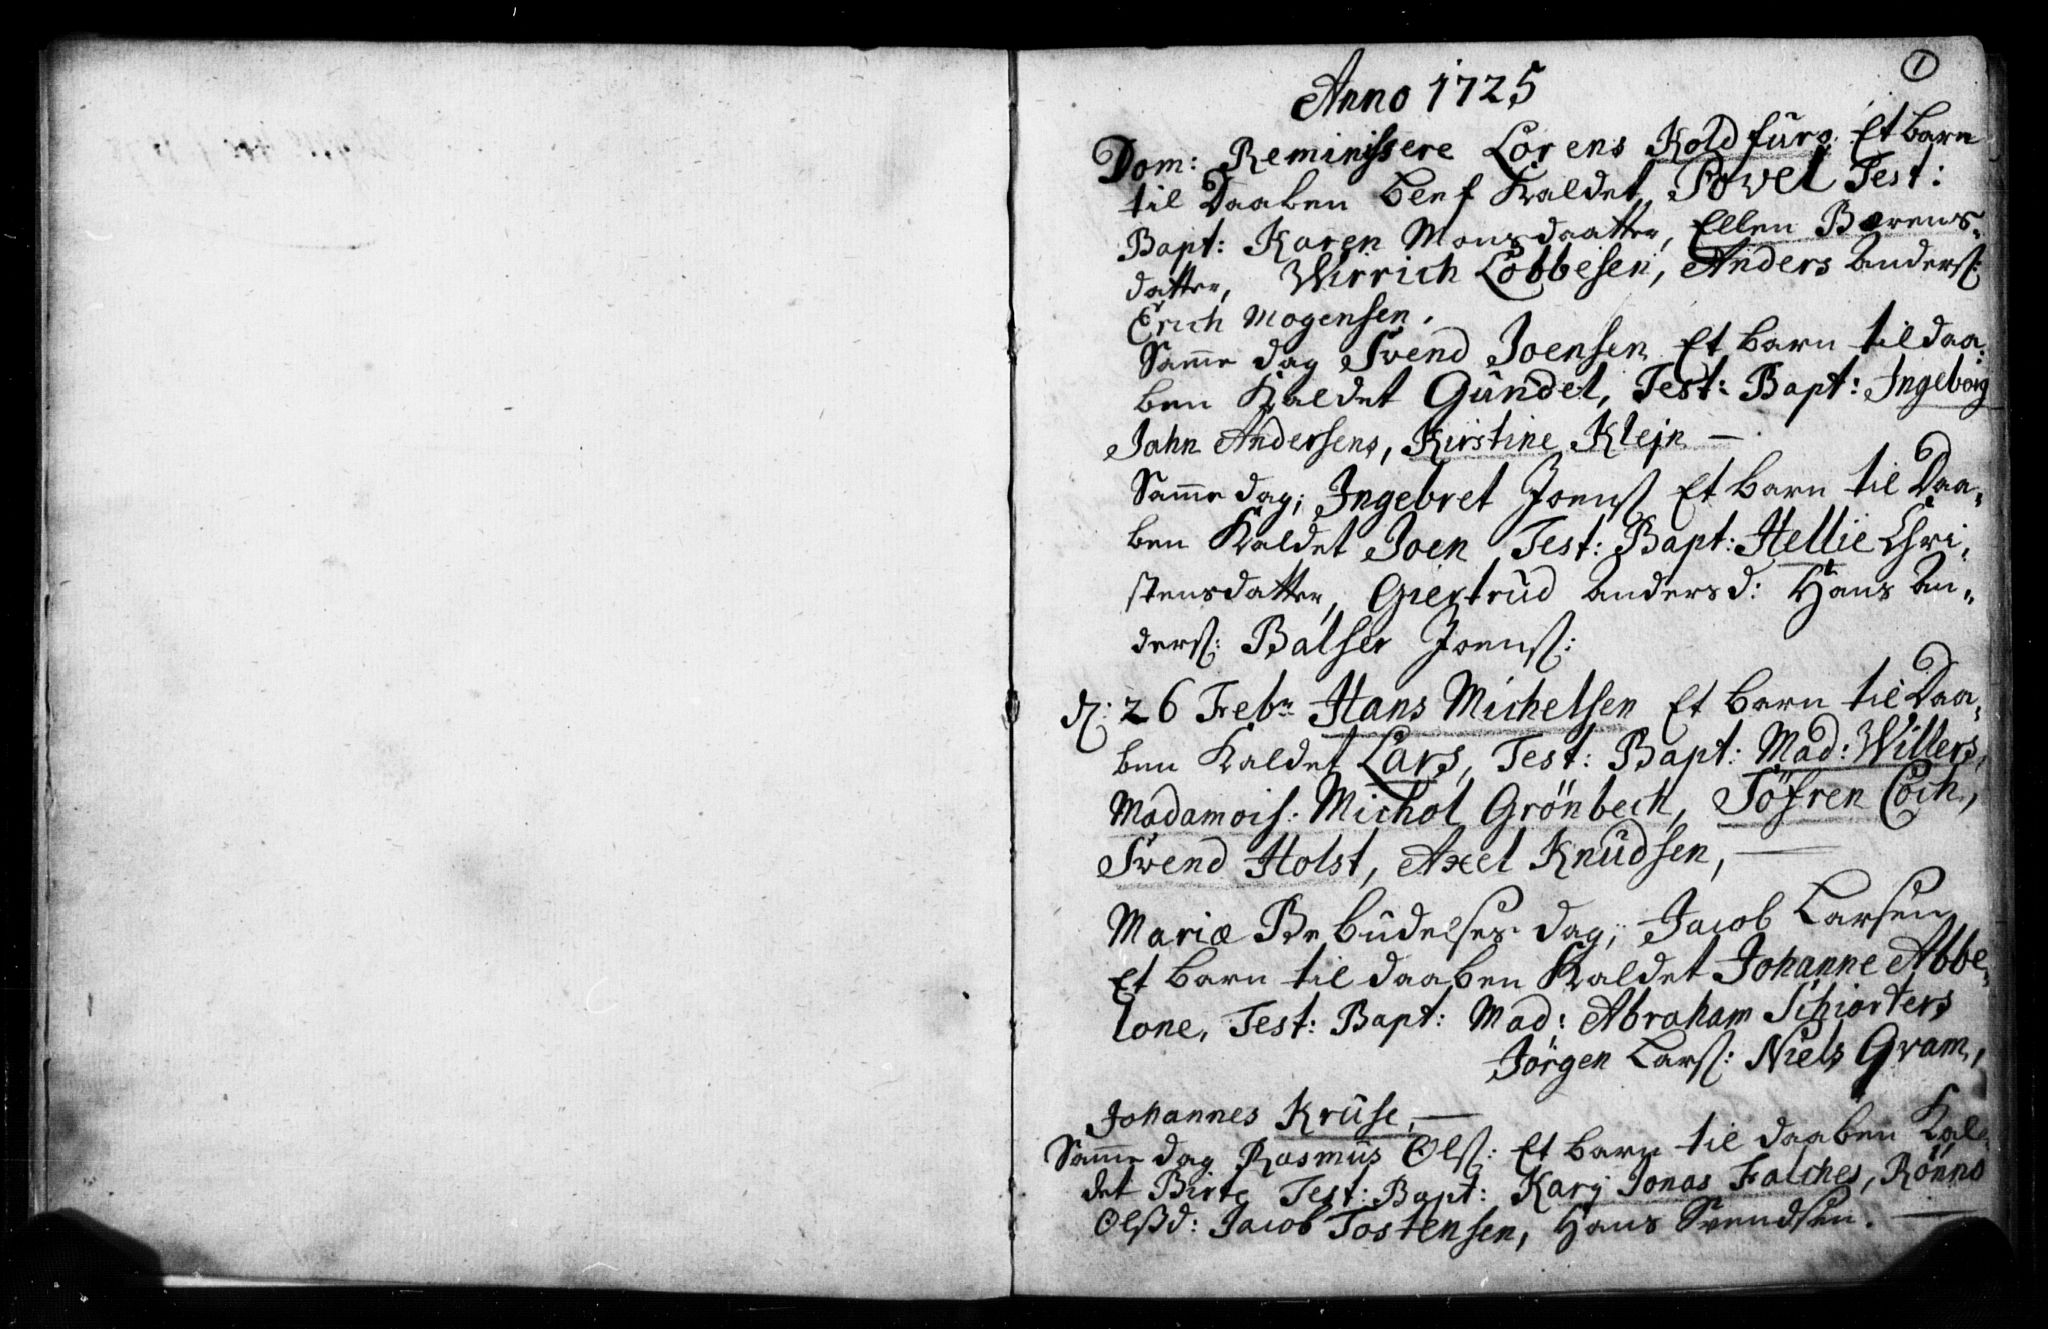 1
Anno 1725
Dom: Reminissere Lorens Koldfurs Et barn
til Daaben blef Kaldet Powel Test:
Bapt: Karen Monsdaatter, Ellen Berens-
datter, Wirrich Löbbesen, Anders Anders:
Erich Mogensen.
Same dag Svend Joensen Et barn til daa-
ben Kaldet Gundel, Test: Bapt: Ingeborg
John Andersens, Kirstine Klejn —
Same dag, Ingebret Joens Et barn til Daa-
ben Kaldet Joen, Test: Bapt: Hellie Chri-
stensdatter, Giertrud Andersd: Hans An-
ders: Balser Joens:
d: 26 Febr Hans Michelsen Et barn til Daa-
ben Kaldet Lars, Test: Bapt: Mad: Willers,
Madamois: Michol Grönbech, Söfren Coch,
Svend Holst, Axel Knudsen, —
Mariæ Bebudelses dag, Jacob Larsen
Et barn til daaben Kaldet Johanne Abbe-
lone, Test: Bapt: Mad: Abraham Schiørters
Jörgen Lars: Niels Gram,
Johannes Kruse, —
Same dag Rasmus Ols: Et barn til daaben Kal-
det Birte Test: Bapt: Karj Jonas Falches, Rönno
Olsd: Jacob Tostensen, Hans Svendsen. —